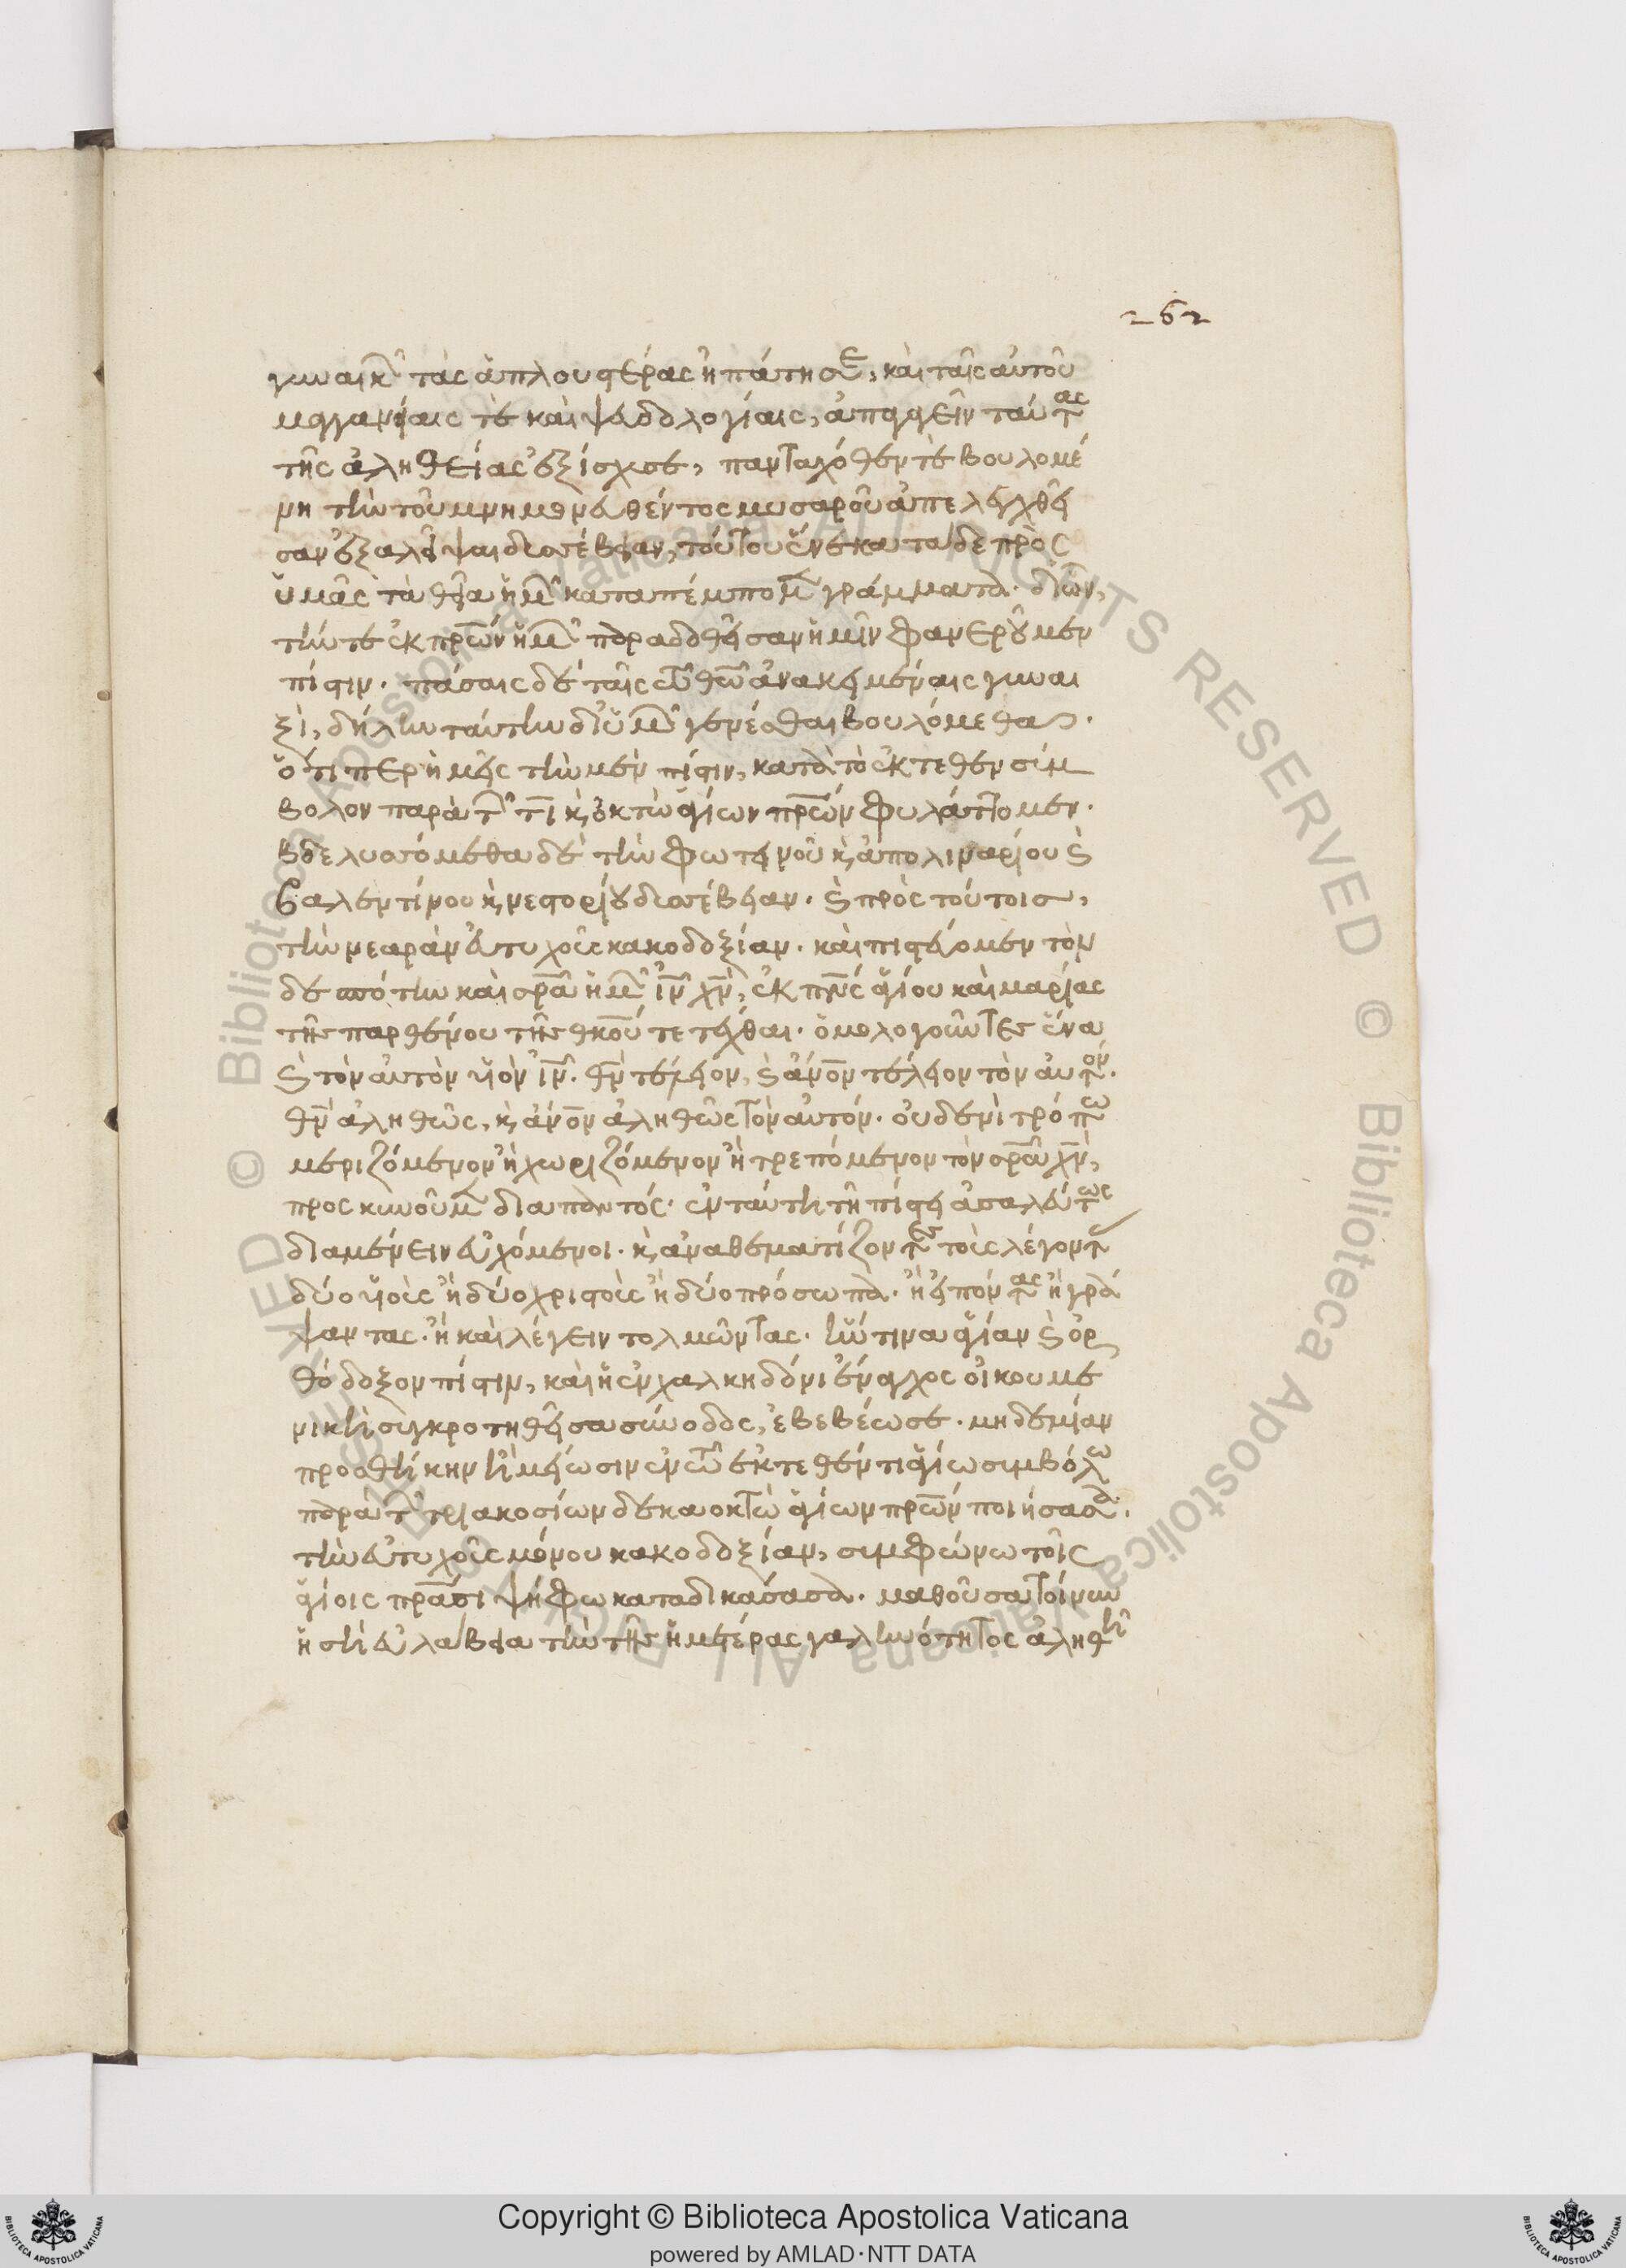 262
γυναικῶν τὰς ἁπλουστέρας ἠπάτησε, καὶ ταῖς αὐτοῦ
μαγγανείαις τὲ καὶ ψευδολογίαις, ἀποστεῖν ταύτας
τῆς ἀληθείας ἐξίσχυσε, πανταχόθέν τε βουλομέ
νη τὴν τοῦ μνημονευθέντος μυσαροῦ ἀπελεγχθεῖ
σαν ἐξαλεῖψαι δυσσέβειαν, τούτου ἕνεκα τάδε πρὸς
ὑμᾶς τὰ θεῖα ἡμῶν καταπέμπομεν γράμματα. δι' ὧν,
τήν τε ἐκ πρων ἡμῶν παραδοθεῖσαν ἡμῖν φανεροῦμεν
πίστιν. πάσαις δὲ ταῖς τῶ θῶ ἀνακειμέναις γυναι
ξὶ, δήλην ταύτην δι' ὑμῶν γενέσθαι βουλόμεθα.
ὅτιπερ ἡμεῖς τὴν μὲν πίστιν, κατὰ τὸ ἐκτεθὲν σύμ
βολον παρὰ τῶν τιη ἁγίων πρων φυλάττομεν.
βδελυσσόμεθα δὲ τὴν φωτεινοῦ κ ἀπολιναρίου κ
βαλεντίνου κ νεστορίου δυσσέβειαν. κ πρὸς τούτοις,
τὴν νεαρὰν εὐτυχοῦς κακοδοξίαν. καὶ πιστεύομεν τὸν
δεσπότην καὶ σρα ἡμῶν ἰν χν, ἐκ πνς ἁγίου καὶ μαρίας
τῆς παρθένου τῆς θκου τετέχθαι. ὁμολογοῦντες ἕνα
κ τὸν αὐτὸν υἱὸν ἰν. θν τέλειον, κ ἀνον τέλειον τὸν αὐτόν.
θν ἀληθῶς, κ ἀνον ἀληθῶς τὸν αὐτόν. οὐδενὶ τρόπω
μεριζόμενον ἢ χωριζόμενον ἢ τρεπόμενον τὸν σρα χν,
προσκυνοῦμεν διαπαντός. ἐν ταύτη τῆ πίστει ἀσαλεύτως
διαμένειν εὐχόμενοι. κ ἀναθεματίζοντες τοὺς λέγοντας
δύο υἱοὺς ἢ δύο χριστοὺς ἢ δύο πρόσωπα. ἢ εἰπόντας ἢ γρά
ψαντας. ἢ καὶ λέγειν τολμῶντας. ἥντινα ἁγίαν κ ὀρ
θόδοξον πίστιν, καὶ ἡ ἐν χαλκηδόνι ἔναγχος οἰκουμε
νικὴ συγκροτηθεῖσα σύνοδος, ἐβεβέωσε. μηδεμίαν
προσθήκην ἢ μείωσιν ἐν τῶ ἐκτεθέντι ἁγίω συμβόλω
παρὰ τῶν τριακοσίων δεκαοκτὼ ἁγίων πρων ποιήσασα.
τὴν εὐτυχοῦς μόνου κακοδοξίαν, συμφώνω τοῖς
ἁγίοις πράσι ψήφω καταδικάσασα. μαθοῦσα τοίνυν
ἡ σὴ εὐλάβεια τὴν τῆς ἡμετέρας γαληνότητος ἀληθῆ